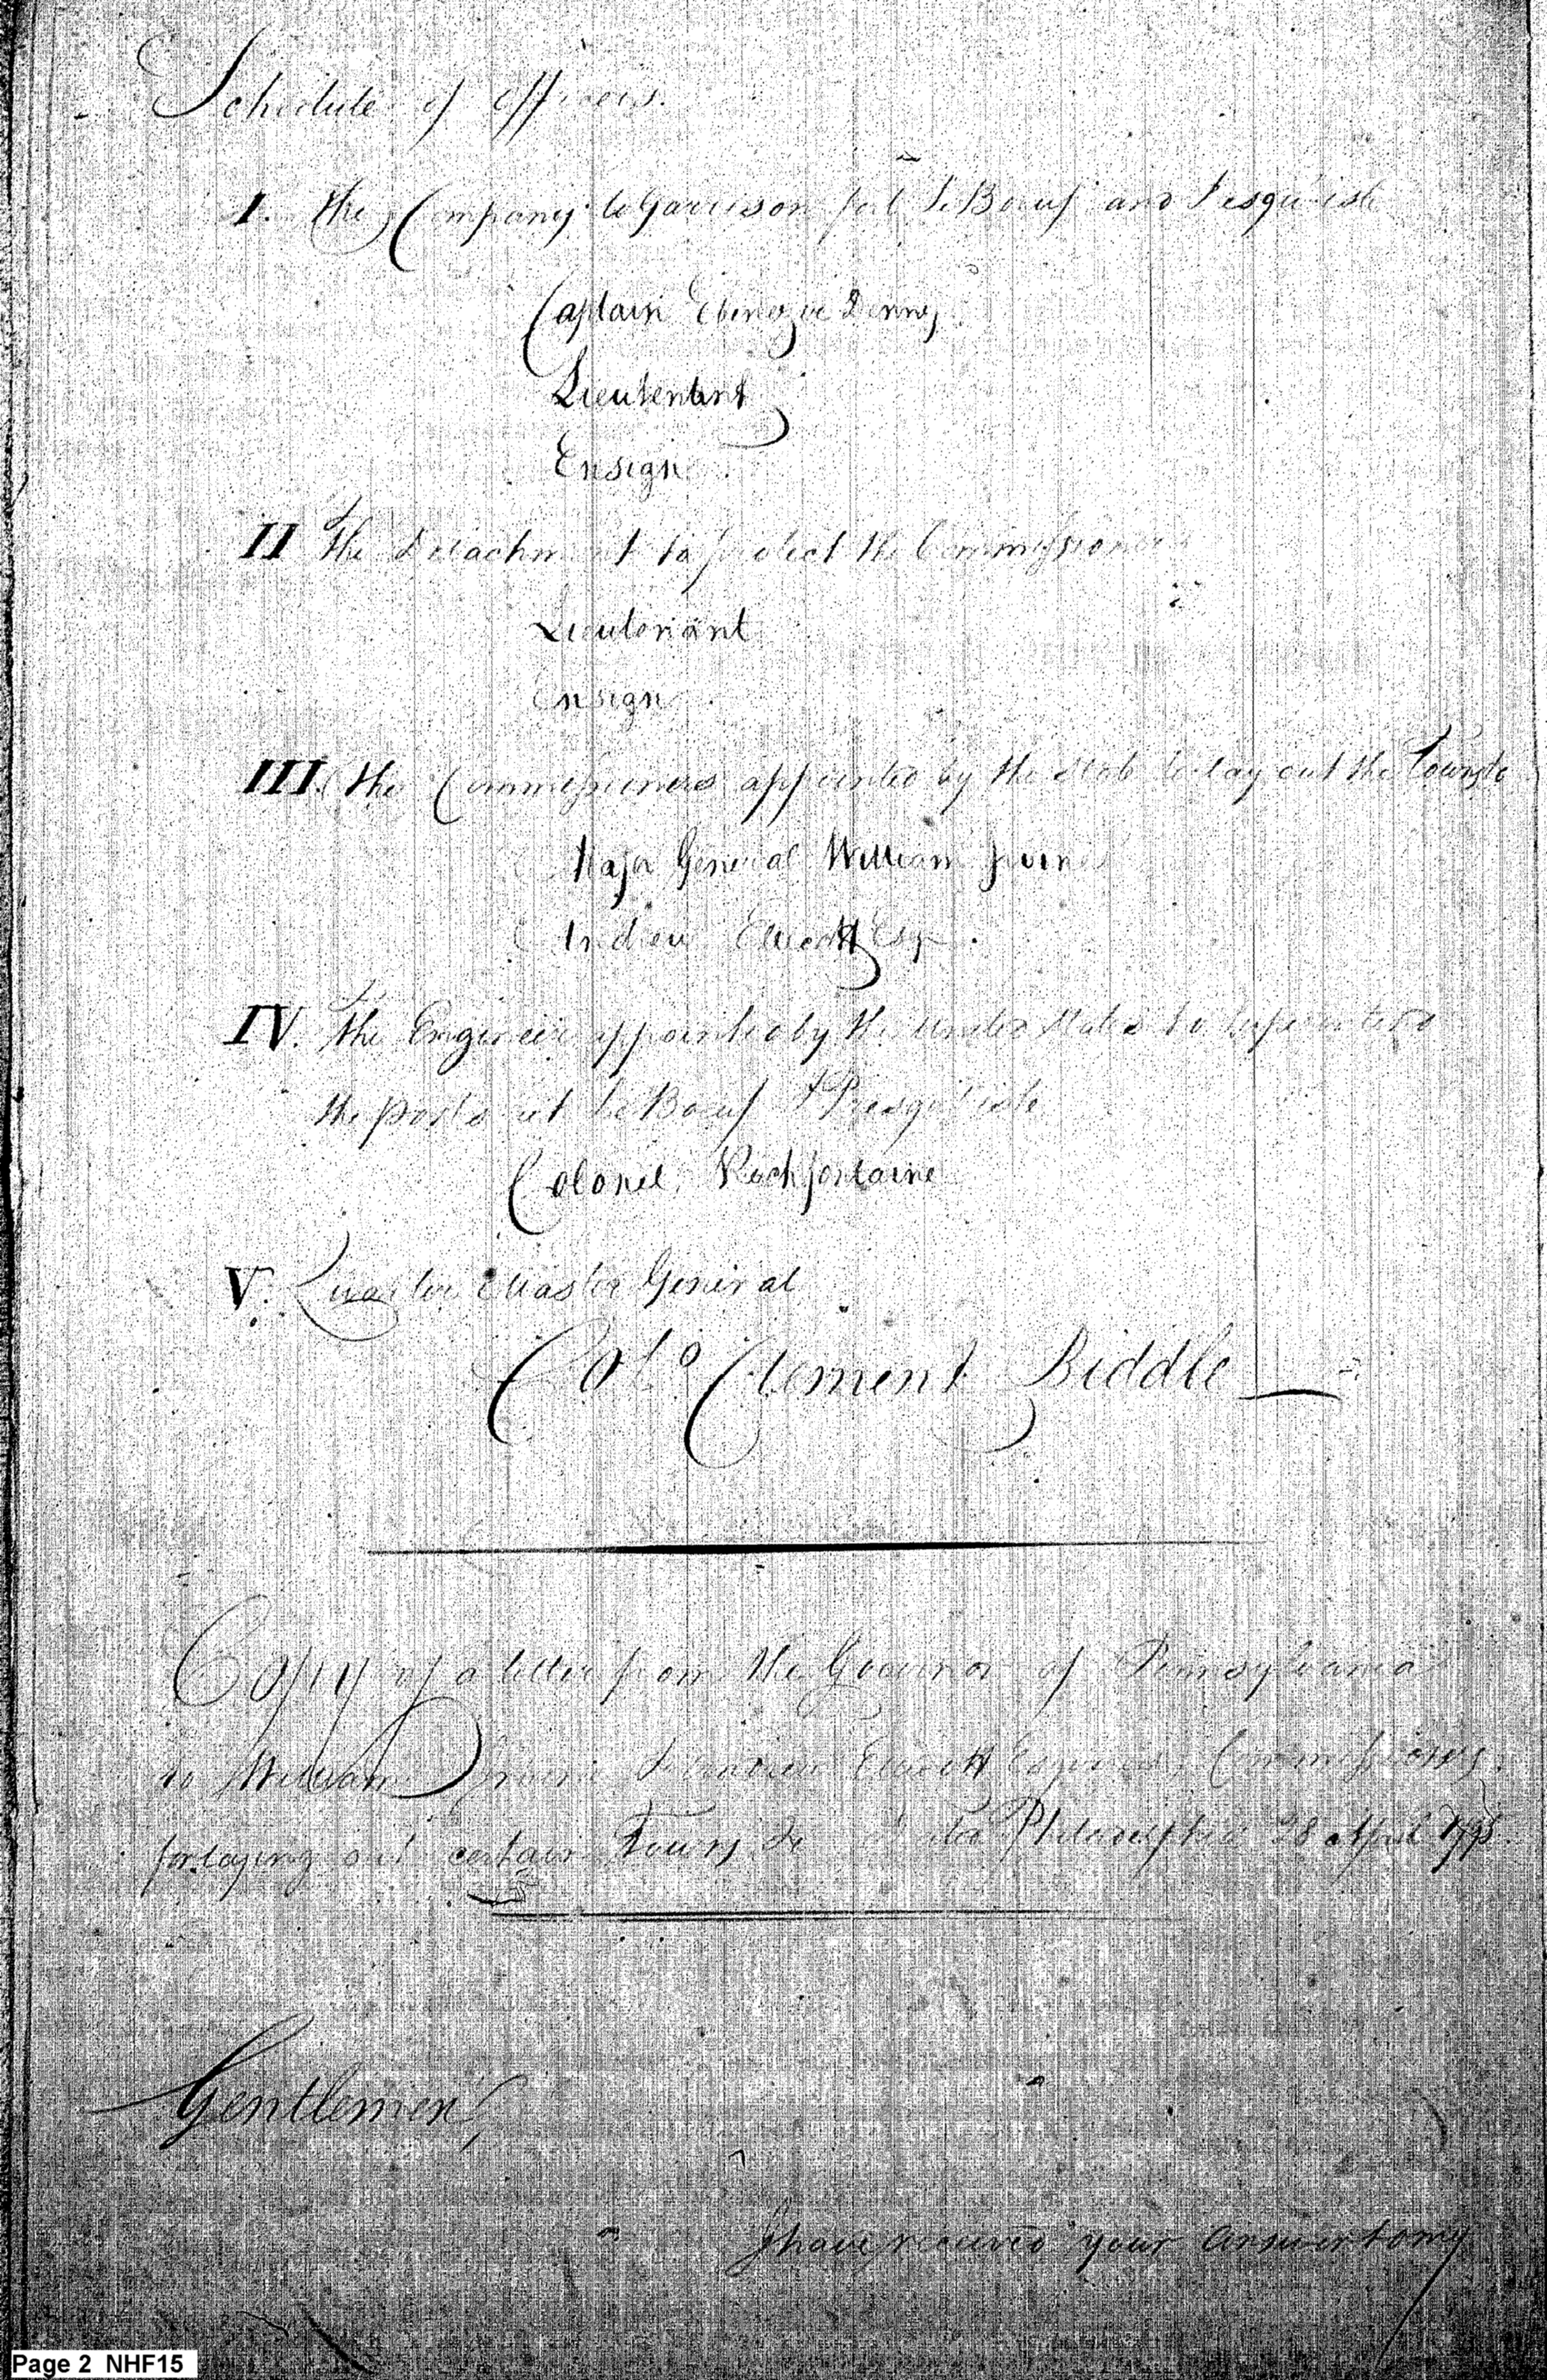 Schedule of officers.
I. The Company to Garrison fort Le Boeuf and Presqu'isle
Captain Ebenezer Denny
Lieutenant
Ensign
II The Detachment to protect the Commissioners
Lieutenant
Ensign
III. The Commissioners appointed by the state to lay out the Towns &c
Major General William Irvine
Andrew Ellicott Esqr.
IV. The Engineer appointed by the United States to superintend
the posts at Le Boeuf & Presqu'isle
Colonel Rochfontaine
V. Quarter Master General
Colo Clement Biddle
Copy of a letter from the Governor of Pennsylvania
to William Irvine & Andrew Ellicott Esquires, Commissioners
for laying out certain Towns &c dated Philadelphia 28 April 1795.
Gentlemen,
I have received your answer to my
Page 2 NHF15